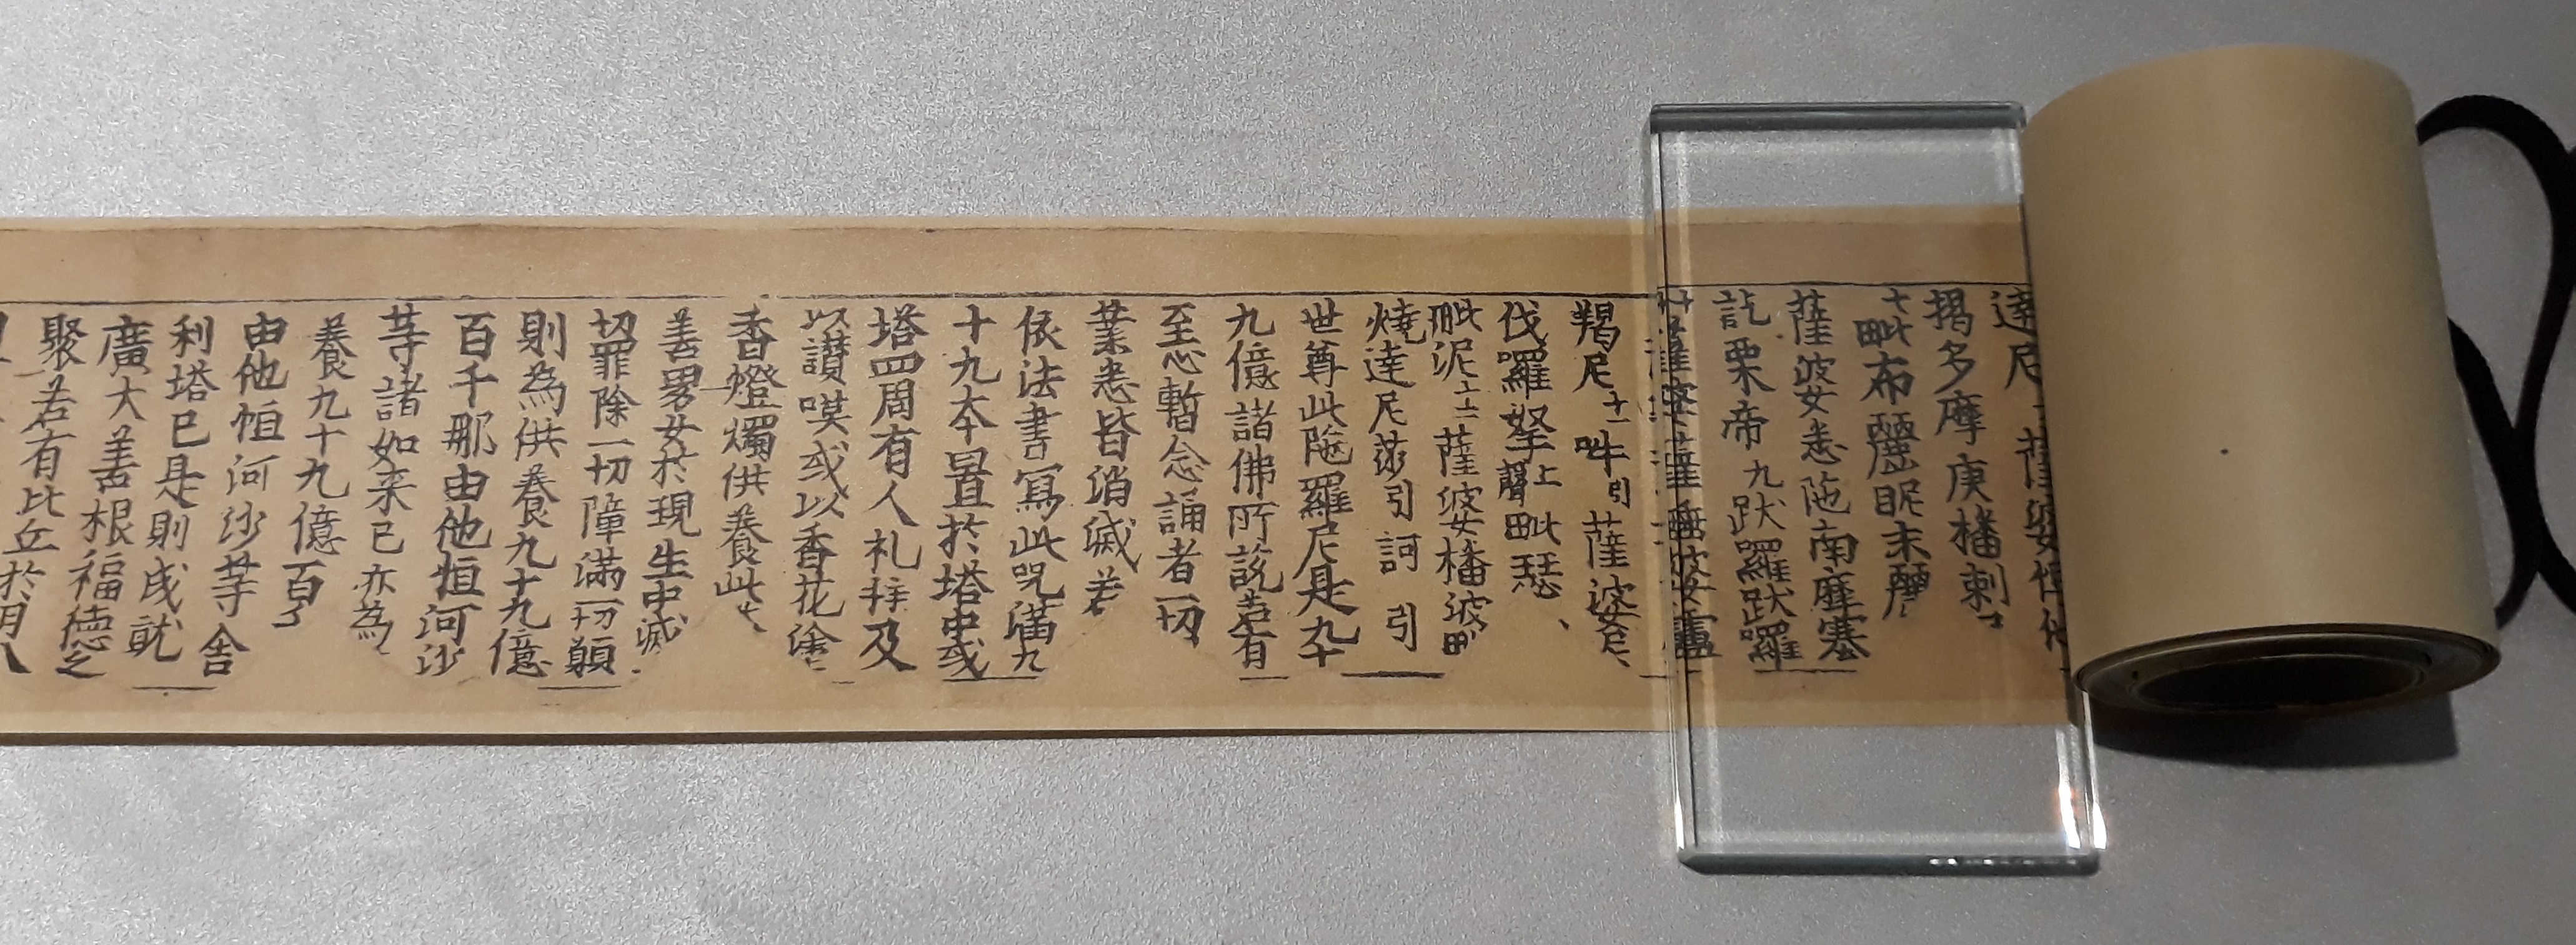 達尼 薩婆
揭多摩庾播刺
毗布麗昵末麗
薩婆悉陁南摩塞
訖栗帝九跋羅跋羅
薩婆薩埵婆盧
羯尼十一吽引薩婆尼
伐羅拏上聲毗瑟
毗泥十三薩婆播波
燒達尼莎引訶引
世尊此陁羅尼是九十
九億諸佛所說若有
至心暫念誦者一切
業悉皆消滅若
依法書寫此咒滿九
十九本置於塔中或
塔四周有人礼拜及
以讃嘆或以香花塗
香燈燭供養此
善男女於現生中滅
切罪除一切障滿一切願
則為供養九十九億
百千那由他恒河沙
等諸如来已亦為
養九十九億百
由他恒河沙等舍
利塔已是則成就
廣大善根福德之
聚若有比丘於月八